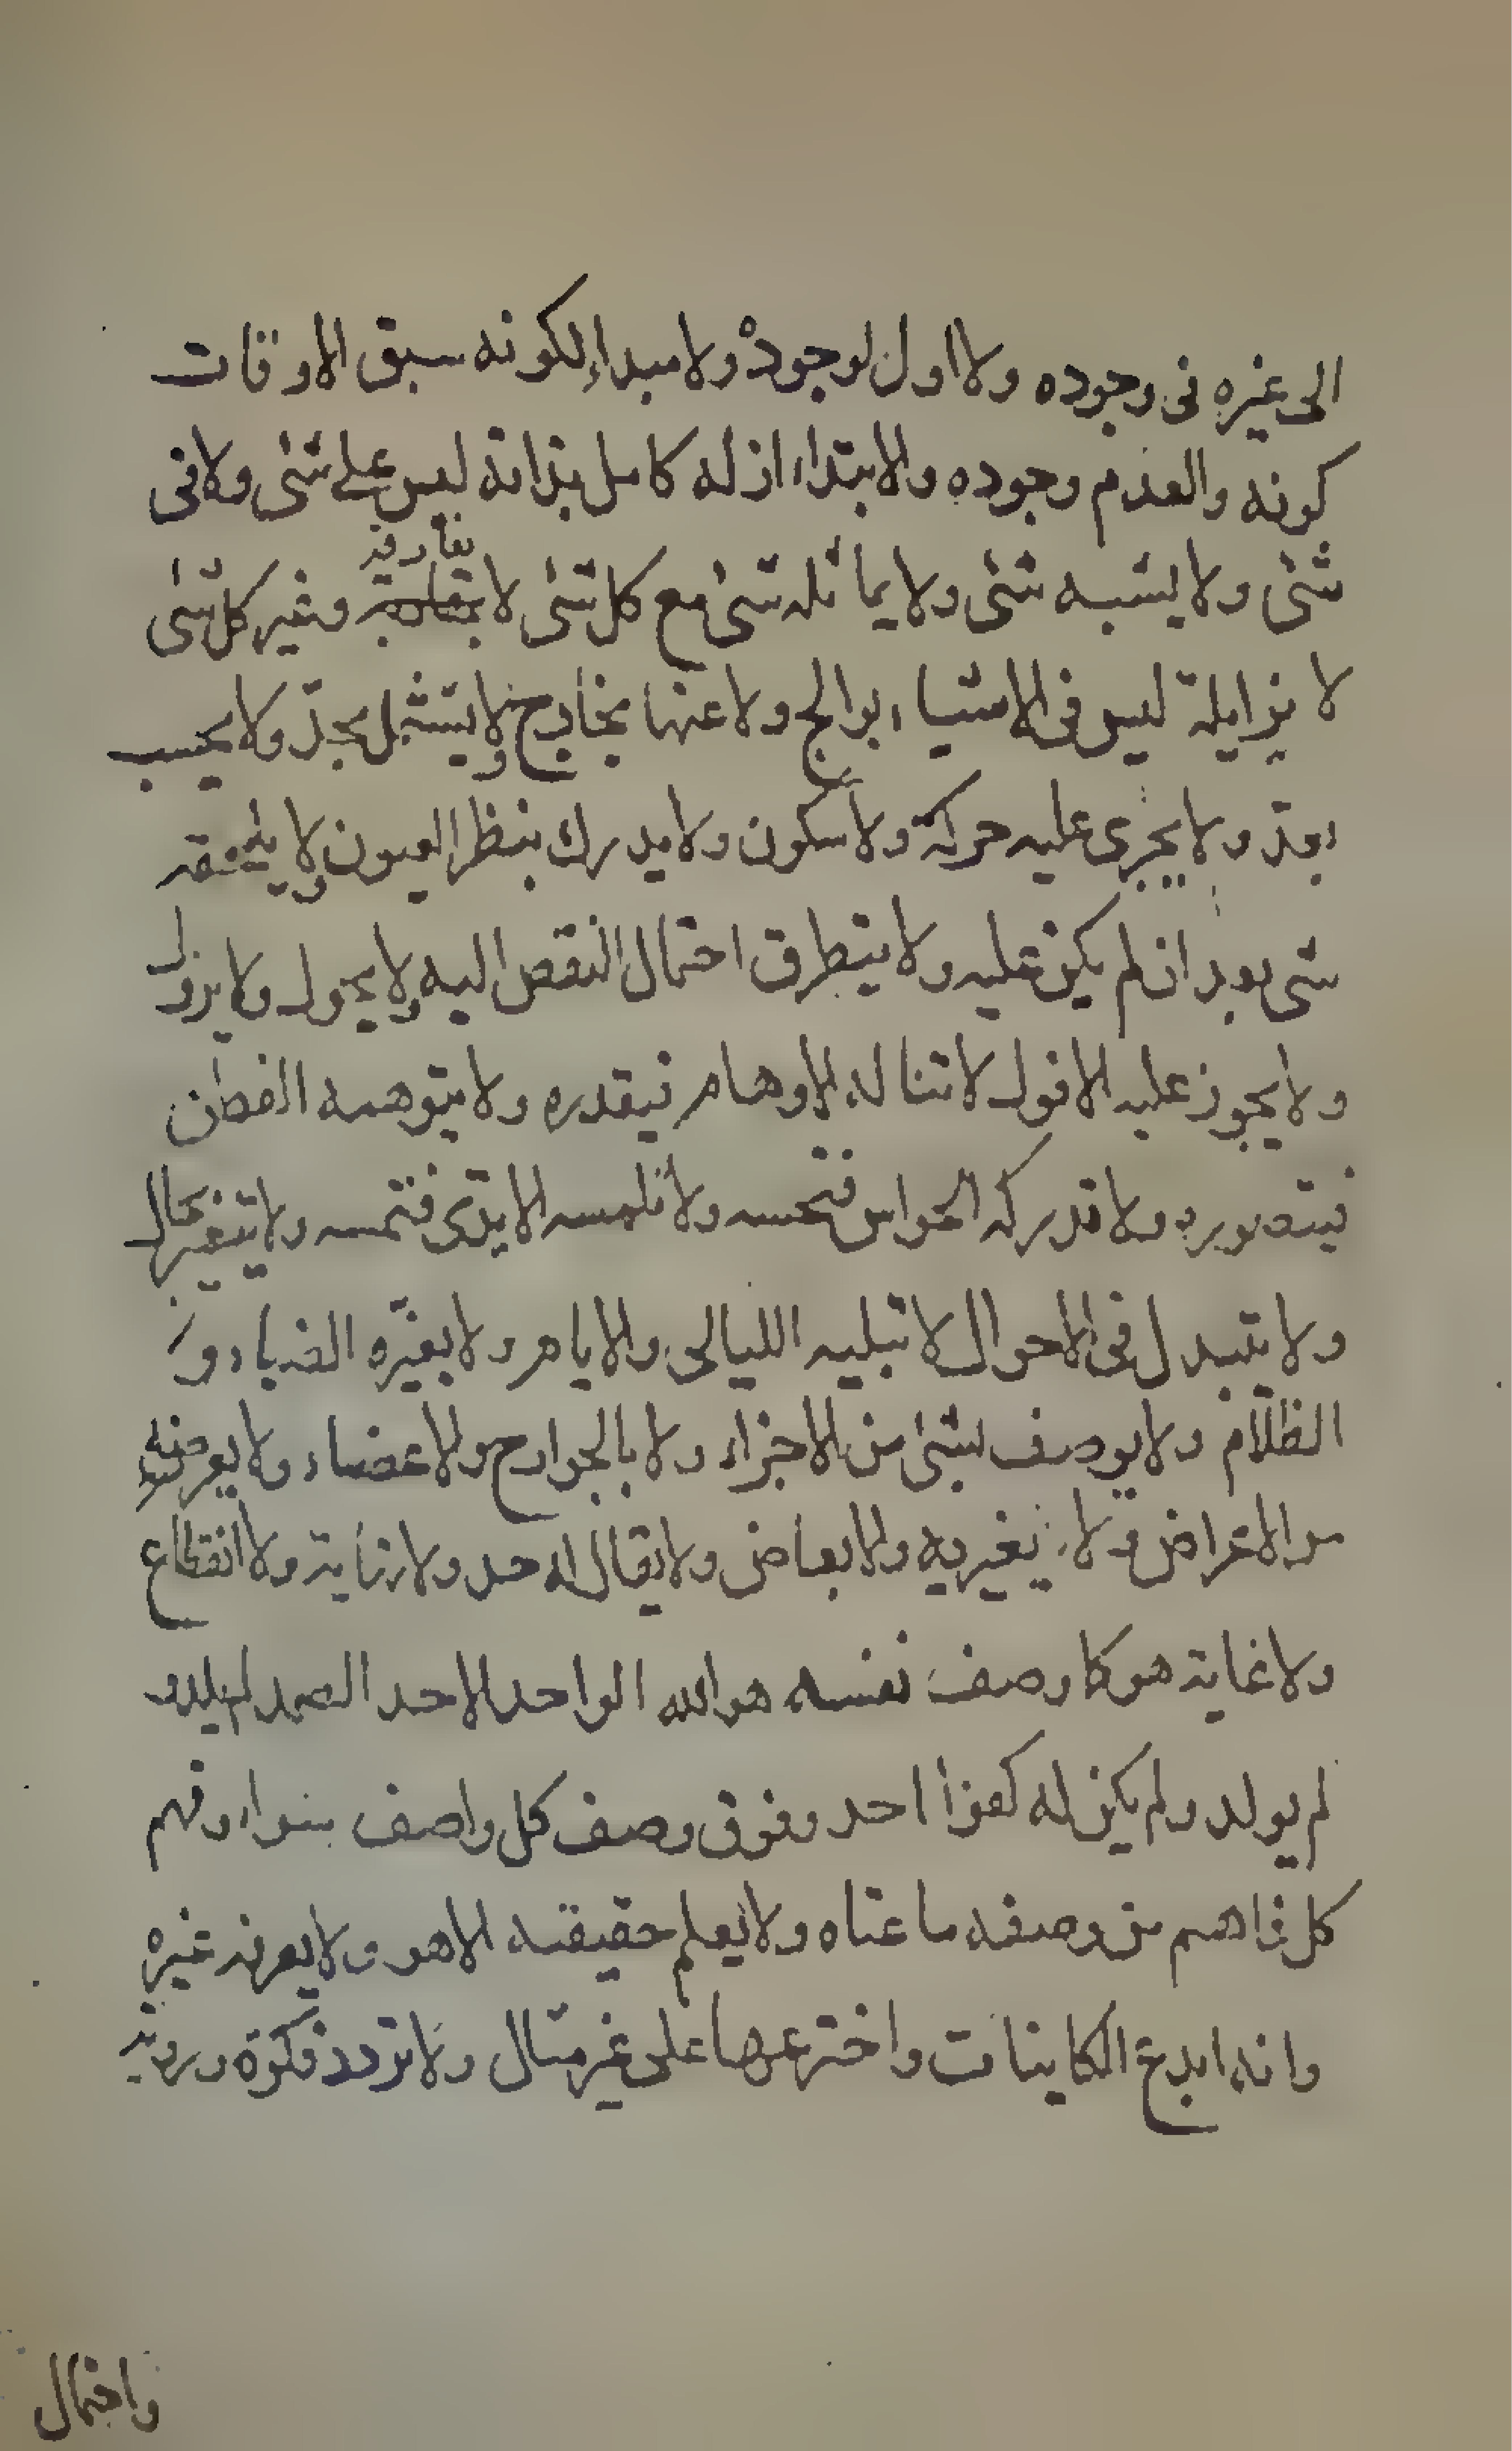 الى غيره فى وجوده ولا اول لوجوده ولا مبداء لكونه سبق الاوقات
كونه والعدم وجوده والابتداء ازله كامل بذاته ليس على شئ ولا فى
شئ ولا يشبه شئ ولا يماثله شئ مع كل شئ لا بمقارنة وغير كل شئ
لا بزايلة ليس فى الاشياء بوالج ولا عنها بخارج ولا يشمل بحد ولا يحسب
بعد ولا يجرى عليه حركة ولا سكون ولا يدرك بنظر العيون ولا
شئ بعد ان لم يكن عليه ولا يتطرق احتمال النقص اليه ولا يحول ولا يزول
ولا يجوز عليه الافول لا تناله الاوهام فيقدره ولا يتوهمه الفطن
فيتصوره ولا تدركه الحواس فتحسه ولا تلمسه الايدى فتمسه ولا يتغير بحال
ولا يتبدل فى الاحوال لا تبليه الليالى والايام ولا يغيره الضياء و
الظلام ولا يوصف بشئ من الاجزاء ولا بالجوارح والاعضاء ولا بعرض
من الاعراض ولا بغيرية والابعاض ولا يقال له حد ولا نهاية ولا انقطاع
ولا غاية هو كما وصف نفسه هو الله الواحد الاحد الصمد لم يلد و
لم يولد ولم يكن له كفوا احد وفوق وصف كل واصف بنواء وفهم
كل فاهم من وصفه ما عناه ولا يعلم حقيقته الا هو ولا يعرفه غيره
وانه ابدع الكاينات واخترعها على غير مثال ولا تردد فكرة وروية
واحتمال